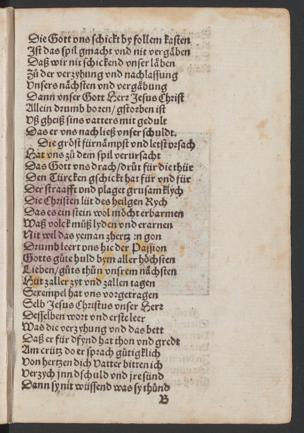 Die Gott vns schickt by follem kasten
Ist das spil gmacht vnd nit vergäben
Daß wir nit schickend vnser läben
Zů der verzyhung vnd nachlassung
Vnsers nächsten vnd vergäbung
Dann vnser Gott Herr Jesus Christ
Allein drumb boren/ gstorben ist
Vß gheiß sins vatters mit gedult
Das er vns nachließ vnser schuldt.
Die gröst fürnämpst vnd letst vrsach
Hat vns zů dem spil verursacht
Das Gott vns drach/drüt für die thür
Den Türcken gschickt hat für vnd für
Der straafft vnd plaget grusamklych
Die Christen lüt des heilgen Rych
Das es ein stein wol möcht erbarmen
Waß volck müß lyden vnd erarnen
Nit wel das yeman zhertz gon
Drumb leert vns hie der Passion
Gotts güte huld bym aller höchsten
Lieben/ güts thůn vnsrem nächsten
Hüt zaller zyt vnd zallen tagen
Sexempel hat vns vorgetragen
Selb Jesus Christus vnser Herr
Desselben wort vnd erste leer
Was die verzyhung vnd das bett
Daß er für dfynd hat thon vnd gredt
Am crütz do er sprach gütigklich
Von hertzen dich Vatter bitten ich
Verzych jnn dschuld vnd jre sünd
Dann sy nit wüssend was sy thünd
B